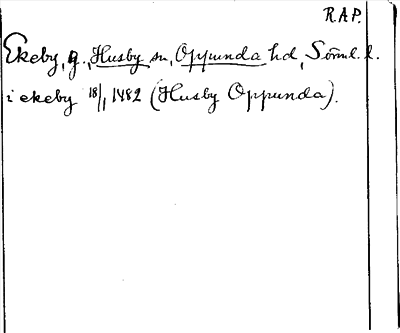 R.A.P.
Ekeby, g., Husby sn, Oppunda hd, Söml. l.
i ekeby 18/1 1482 (Husby Oppunda).